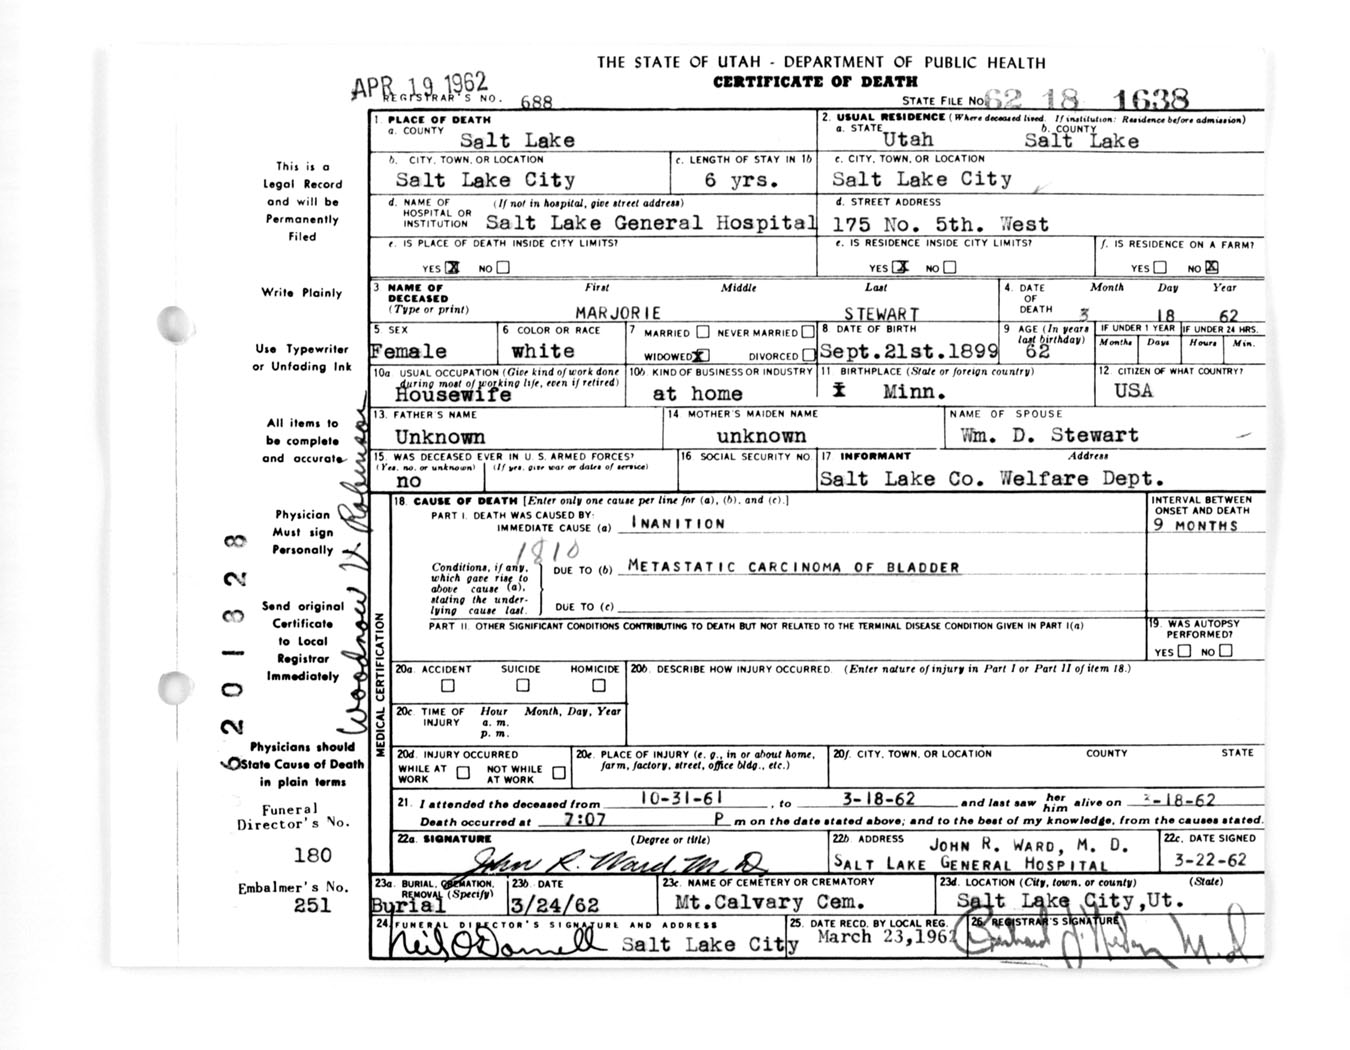 THE STATE OF UTAH - DEPARTMENT OF PUBLIC HEALTH
CERTIFICATE OF DEATH
APR 19 1962
REGISTRAR'S NO. 688
STATE FILE NO. 62 18 1638
This is a
Legal Record
and will be
Permanently
Filed
Write Plainly
Use Typewriter
or Unfading Ink
All items to
be complete
and accurate
Physician
Must sign
Personally
Send original
Certificate
to Local
Registrar
Immediately
Physicians should
State Cause of Death
in plain terms
Funeral
Director's No.
180
Embalmer's No.
251
201328
Woodrow
1. PLACE OF DEATH
a. COUNTY
Salt Lake
2. USUAL RESIDENCE (Where deceased lived. If institution: Residence before admission)
a. STATE Utah b. COUNTY Salt Lake
b. CITY, TOWN, OR LOCATION
Salt Lake City
c. LENGTH OF STAY IN 1b
6 yrs.
c. CITY, TOWN, OR LOCATION
Salt Lake City
d. NAME OF HOSPITAL OR INSTITUTION (If not in hospital, give street address)
Salt Lake General Hospital
d. STREET ADDRESS
175 No. 5th. West
e. IS PLACE OF DEATH INSIDE CITY LIMITS?
YES X NO
e. IS RESIDENCE INSIDE CITY LIMITS?
YES X NO
f. IS RESIDENCE ON A FARM?
YES NO X
3 NAME OF DECEASED (Type or print) First Middle Last
MARJORIE STEWART
4. DATE OF DEATH Month Day Year
3 18 62
5. SEX
Female
6 COLOR OR RACE
white
7 MARRIED NEVER MARRIED
WIDOWED X DIVORCED
8 DATE OF BIRTH
Sept.21st.1899
9 AGE (In years last birthday)
62
IF UNDER 1 YEAR
Months Days
IF UNDER 24 HRS.
Hours Min.
10a. USUAL OCCUPATION (Give kind of work done during most of working life, even if retired)
Housewife
10b. KIND OF BUSINESS OR INDUSTRY
at home
11 BIRTHPLACE (State or foreign country)
Minn.
12 CITIZEN OF WHAT COUNTRY?
USA
13. FATHER'S NAME
Unknown
14 MOTHER'S MAIDEN NAME
unknown
NAME OF SPOUSE
Wm. D. Stewart
15. WAS DECEASED EVER IN U. S. ARMED FORCES?
(Yes, no, or unknown) (If yes, give war or dates of service)
no
16 SOCIAL SECURITY NO.
17 INFORMANT Address
Salt Lake Co. Welfare Dept.
MEDICAL CERTIFICATION
18. CAUSE OF DEATH [Enter only one cause per line for (a), (b), and (c).]
PART I. DEATH WAS CAUSED BY:
IMMEDIATE CAUSE (a) INANITION
INTERVAL BETWEEN ONSET AND DEATH
9 MONTHS
1810
Conditions, if any, which gave rise to above cause (a), stating the underlying cause last.
DUE TO (b) METASTATIC CARCINOMA OF BLADDER
DUE TO (c)
PART II. OTHER SIGNIFICANT CONDITIONS CONTRIBUTING TO DEATH BUT NOT RELATED TO THE TERMINAL DISEASE CONDITION GIVEN IN PART I(a)
19. WAS AUTOPSY PERFORMED?
YES NO
20a. ACCIDENT SUICIDE HOMICIDE
20b. DESCRIBE HOW INJURY OCCURRED. (Enter nature of injury in Part I or Part II of item 18.)
20c. TIME OF INJURY Hour Month, Day, Year
a. m.
p. m.
20d. INJURY OCCURRED
WHILE AT WORK NOT WHILE AT WORK
20e. PLACE OF INJURY (e. g., in or about home, farm, factory, street, office bldg., etc.)
20f. CITY, TOWN, OR LOCATION COUNTY STATE
21. I attended the deceased from 10-31-61, to 3-18-62 and last saw her him alive on 3-18-62
Death occurred at 7:07 P m on the date stated above; and to the best of my knowledge, from the causes stated.
22a. SIGNATURE (Degree or title)
John R. Ward M.D.
22b. ADDRESS JOHN R. WARD, M. D.
SALT LAKE GENERAL HOSPITAL
22c. DATE SIGNED
3-22-62
23a. BURIAL, CREMATION, REMOVAL (Specify)
Burial
23b. DATE
3/24/62
23c. NAME OF CEMETERY OR CREMATORY
Mt.Calvary Cem.
23d. LOCATION (City, town, or county) (State)
Salt Lake City,Ut.
24. FUNERAL DIRECTOR'S SIGNATURE AND ADDRESS
Neil O'Donnell Salt Lake City
25. DATE RECD. BY LOCAL REG.
March 23,1962
26. REGISTRAR'S SIGNATURE